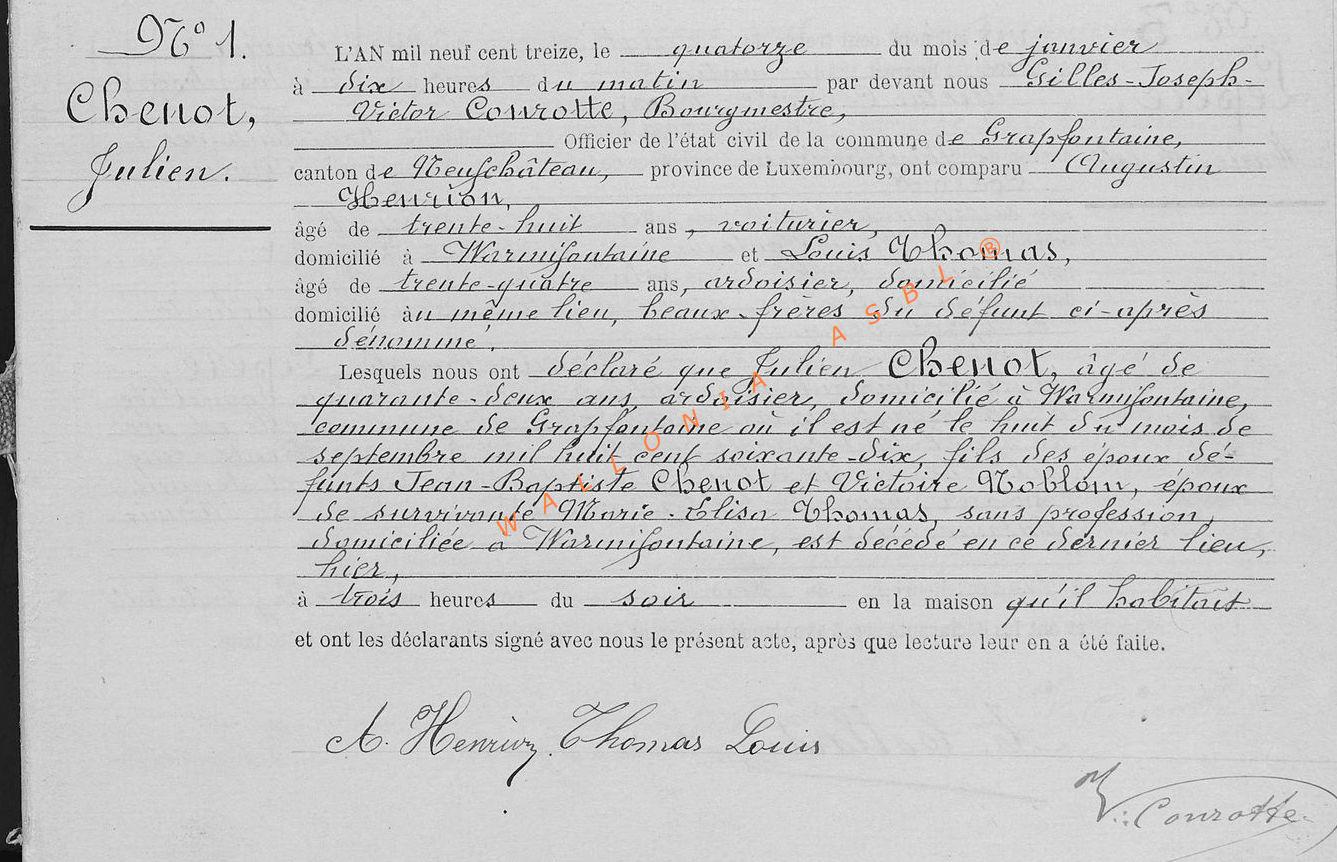 Nº 1.
Chenot,
Julien.
L'AN mil neuf cent treize, le quatorze du mois de janvier
à dix heures du matin par devant nous Gilles-Joseph-
Victor Conrotte, Bourgmestre,
Officier de l'état civil de la commune de Grapfontaine,
canton de Neufchâteau, province de Luxembourg, ont comparu Augustin
Henrion,
âgé de trente-huit ans, voiturier,
domicilié à Warmifontaine et Louis Thomas,
âgé de trente-quatre ans, ardoisier, domicilié
domicilié au même lieu, beaux-frères du défunt ci-après
dénommé,
Lesquels nous ont déclaré que Julien Chenot, âgé de
quarante-deux ans, ardoisier, domicilié à Warmifontaine,
commune de Grapfontaine où il est né le huit du mois de
septembre mil huit cent soixante-dix, fils des époux dé-
funts Jean-Baptiste Chenot et Victoire Noblom, époux
de survivante Marie-Elisa Thomas, sans profession,
domiciliée à Warmifontaine, est décédé en ce dernier lieu,
hier,
à trois heures du soir en la maison qu'il habitait
et ont les déclarants signé avec nous le présent acte, après que lecture leur en a été faite.
A. Henrion Thomas Louis
V. Conrotte
WALLONIA ASBL ®